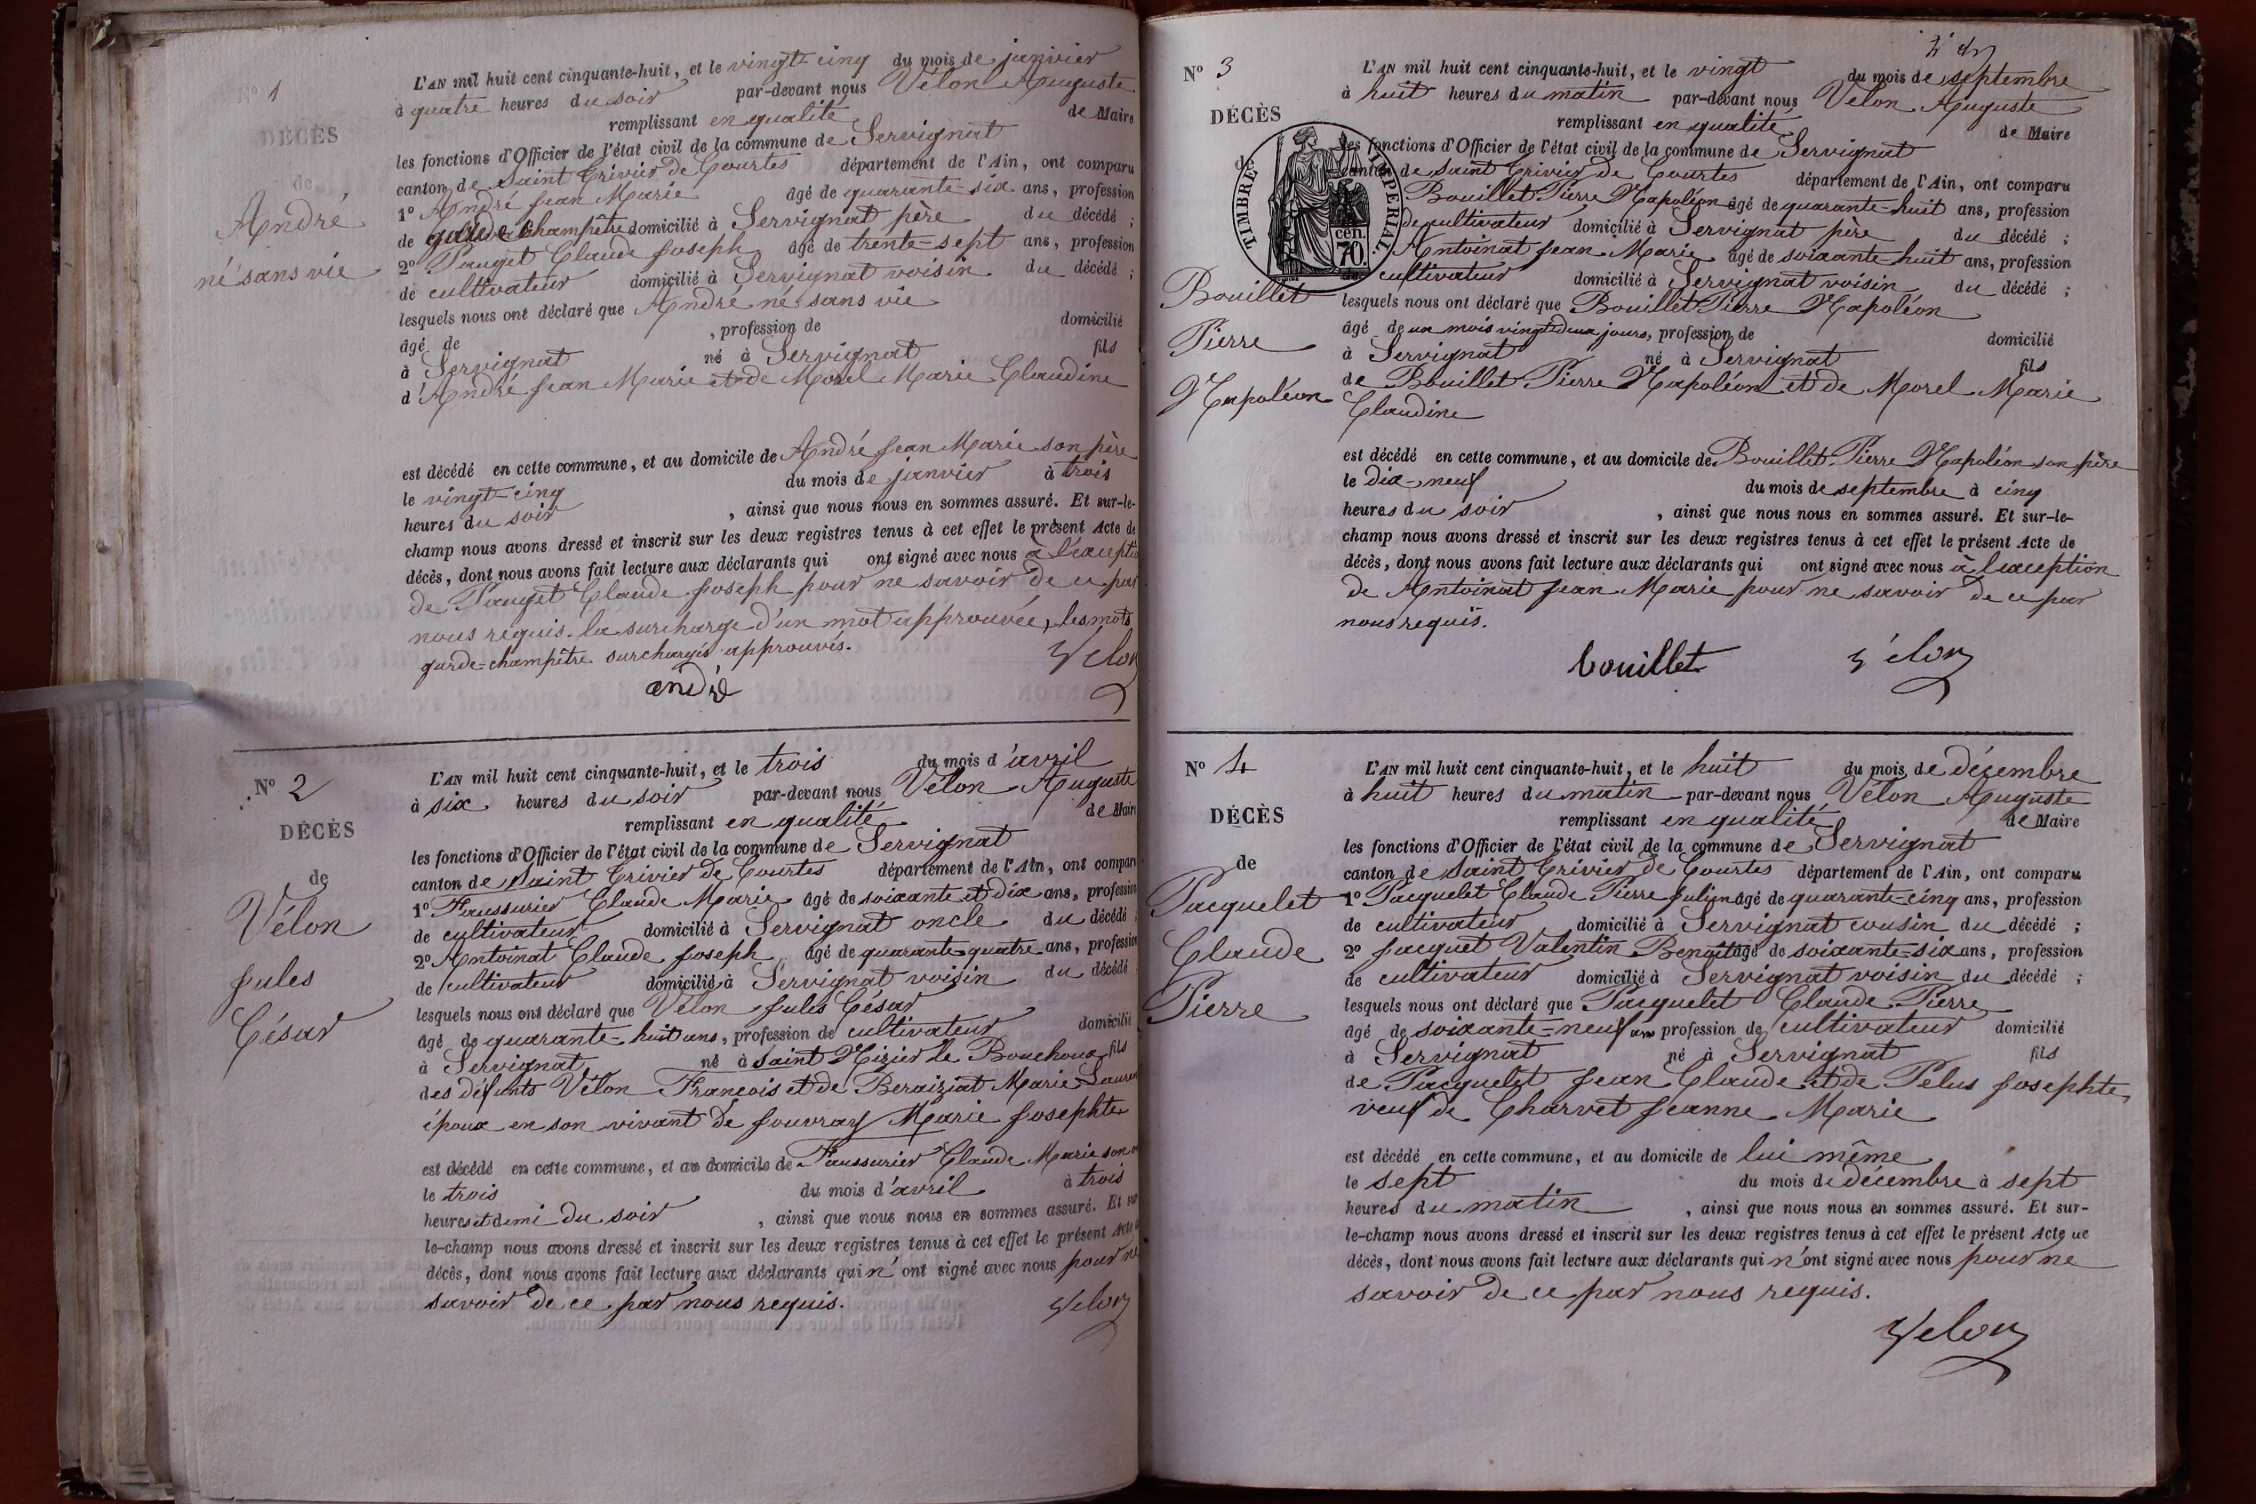 Nº 1
DÉCÈS
de
André
né sans vie
L'AN mil huit cent cinquante-huit, et le vingt-cinq du mois de janvier
à quatre heures du soir par-devant nous Vélon Auguste
remplissant en qualité de Maire
les fonctions d'Officier de l'état civil de la commune de Servignat
canton de Saint Trivier de Courtes département de l'Ain, ont comparu
1º André Jean Marie âgé de quarante-six ans, profession
de garde-champêtre domicilié à Servignat père du décédé ;
2º Pauget Claude Joseph âgé de trente-sept ans, profession
de cultivateur domicilié à Servignat voisin du décédé ;
lesquels nous ont déclaré que André né sans vie
âgé de , profession de domicilié
à Servignat né à Servignat fils
d'André Jean Marie et de Morel Marie Claudine
est décédé en cette commune, et au domicile de André Jean Marie son père
le vingt-cinq du mois de janvier à trois
heures du soir , ainsi que nous nous en sommes assuré. Et sur-le-
champ nous avons dressé et inscrit sur les deux registres tenus à cet effet le présent Acte de
décès, dont nous avons fait lecture aux déclarants qui ont signé avec nous à l'excepti
de Pauget Claude Joseph pour ne savoir de ce par
nous requis. la surcharge d'un mot approuvée, les mots
garde-champêtre surchargés approuvés.
Vélon
andré
Nº 2
DÉCÈS
de
Vélon
Jules
César
L'AN mil huit cent cinquante-huit, et le trois du mois d'avril
à six heures du soir par-devant nous Vélon Auguste
remplissant en qualité de Maire
les fonctions d'Officier de l'état civil de la commune de Servignat
canton de Saint Trivier de Courtes département de l'Ain, ont comparu
1º Faussurier Claude Marie âgé de soixante et dix ans, profession
de cultivateur domicilié à Servignat oncle du décédé ;
2º Antoinat Claude Joseph âgé de quarante-quatre ans, profession
de cultivateur domicilié à Servignat voisin du décédé
lesquels nous ont déclaré que Vélon Jules César
âgé de quarante-huit ans, profession de cultivateur domicilié
à Servignat né à Saint Nizier le Bouchoux fils
des défunts Vélon François et de Beraiziat Marie
époux en son vivant de Jouvray Marie Josephte
est décédé en cette commune, et au domicile de Faussurier Claude Marie son
le trois du mois d'avril à trois
heures et demi du soir , ainsi que nous nous en sommes assuré. Et sur
le-champ nous avons dressé et inscrit sur les deux registres tenus à cet effet le présent Acte
décès, dont nous avons fait lecture aux déclarants qui n'ont signé avec nous pour ne
savoir de ce par nous requis.
Vélon
Nº 3
DÉCÈS
de
TIMBRE IMPERIAL.
cen.
70.
Bouillet
Pierre
Napoléon
L'AN mil huit cent cinquante-huit, et le vingt du mois de septembre
à huit heures du matin par-devant nous Vélon Auguste
remplissant en qualité de Maire
les fonctions d'Officier de l'état civil de la commune de Servignat
canton de Saint Trivier de Courtes département de l'Ain, ont comparu
Bouillet Pierre Napoléon âgé de quarante-huit ans, profession
de cultivateur domicilié à Servignat père du décédé ;
Antoinat Jean Marie âgé de soixante-huit ans, profession
cultivateur domicilié à Servignat voisin du décédé ;
lesquels nous ont déclaré que Bouillet Pierre Napoléon
âgé de un mois vingt deux jours, profession de domicilié
à Servignat né à Servignat fils
de Bouillet Pierre Napoléon et de Morel Marie
Claudine
est décédé en cette commune, et au domicile de Bouillet Pierre Napoléon son père
le dix-neuf du mois de septembre à cinq
heures du soir , ainsi que nous nous en sommes assuré. Et sur-le-
champ nous avons dressé et inscrit sur les deux registres tenus à cet effet le présent Acte de
décès, dont nous avons fait lecture aux déclarants qui ont signé avec nous à l'exception
de Antoinat Jean Marie pour ne savoir de ce par
nous requis.
bouillet Vélon
Nº 4
DÉCÈS
de
Pacquelet
Claude
Pierre
L'AN mil huit cent cinquante-huit, et le huit du mois de décembre
à huit heures du matin par-devant nous Vélon Auguste
remplissant en qualité de Maire
les fonctions d'Officier de l'état civil de la commune de Servignat
canton de Saint Trivier de Courtes département de l'Ain, ont comparu
1º Pacquelet Claude Pierre Julien âgé de quarante-cinq ans, profession
de cultivateur domicilié à Servignat cousin du décédé ;
2º Jacquet Valentin Benoît âgé de soixante-six ans, profession
de cultivateur domicilié à Servignat voisin du décédé ;
lesquels nous ont déclaré que Pacquelet Claude Pierre
âgé de soixante-neuf ans profession de cultivateur domicilié
à Servignat né à Servignat fils
de Pacquelet Jean Claude et de Pelus Josephte,
veuf de Charvet Jeanne Marie
est décédé en cette commune, et au domicile de lui même
le sept du mois de décembre à sept
heures du matin , ainsi que nous nous en sommes assuré. Et sur-
le-champ nous avons dressé et inscrit sur les deux registres tenus à cet effet le présent Acte de
décès, dont nous avons fait lecture aux déclarants qui n'ont signé avec nous pour ne
savoir de ce par nous requis.
Vélon